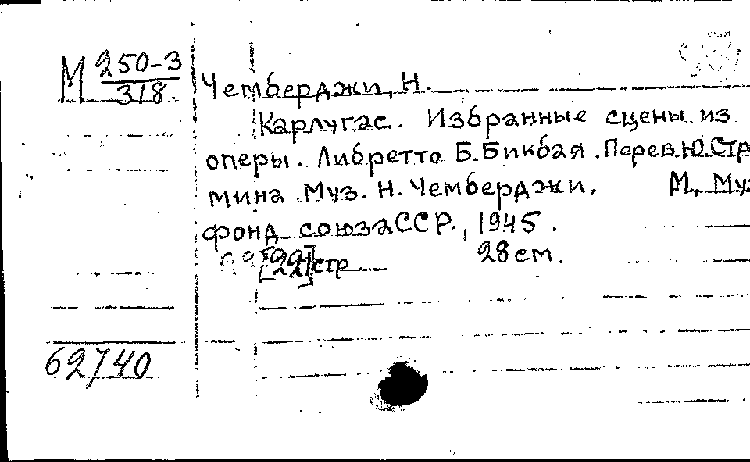 М 250-3
318
Чемберджи, Н.
Карлугас. Избранные сцены из
оперы. Либретто Б. Бикбая. Перев. Ю. Стр
мина Муз. Н. Чемберджи. М, Муз
фонд союза ССР, 1945.
[22] стр 28 см.
62740